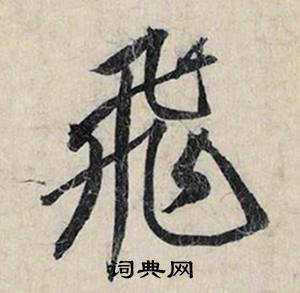 飛
词典网